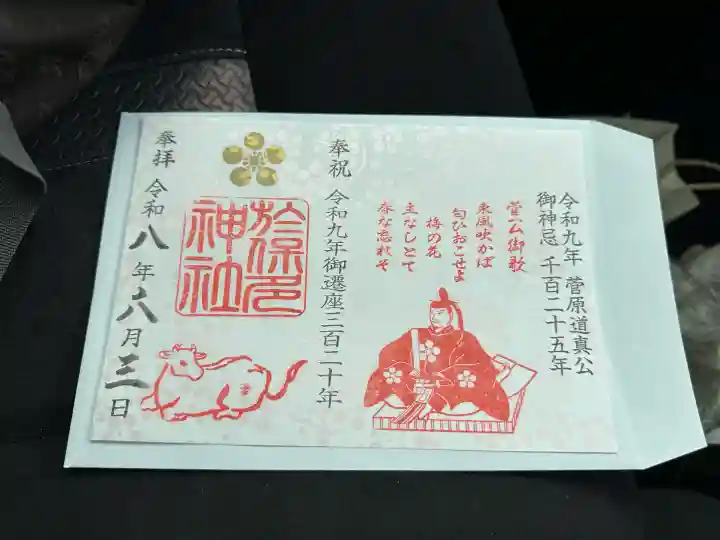 令和九年 菅原道真公
御神忌 千百二十五年
菅公御歌
東風吹かば
匂ひおこせよ
梅の花
主なしとて
春な忘れそ
奉祝 令和九年御遷座三百二十年
於保多
神社
奉拝 令和八年六月三日